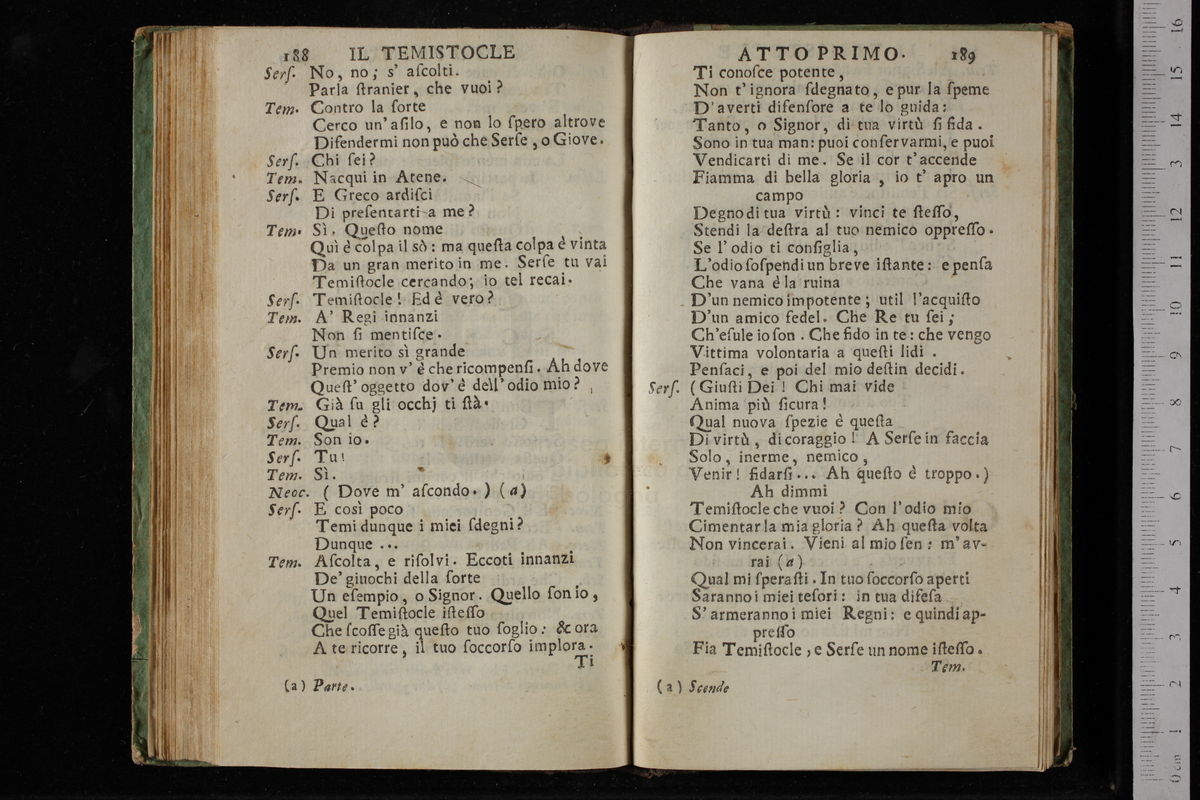 188 IL TEMISTOCLE
Serſ. No, no; s' aſcolti.
Parla ſtranier, che vuoi?
Tem. Contro la ſorte
Cerco un' aſilo, e non lo ſpero altrove
Difendermi non può che Serſe, o Giove.
Serſ. Chi ſei?
Tem. Nacqui in Atene.
Serſ. E Greco ardiſci
Di preſentarti a me?
Tem. Sì. Queſto nome
Quì è colpa il sò: ma queſta colpa è vinta
Da un gran merito in me. Serſe tu vai
Temiſtocle cercando; io tel recai.
Serſ. Temiſtocle! Ed è vero?
Tem. A' Regi innanzi
Non ſi mentiſce.
Serſ. Un merito sì grande
Premio non v' è che ricompenſi. Ah dove
Queſt' oggetto dov' è dell' odio mio?
Tem. Già ſu gli occhj ti ſtà.
Serſ. Qual è?
Tem. Son io.
Serſ. Tu!
Tem. Sì.
Neoc. ( Dove m' aſcondo. ) (a)
Serſ. E così poco
Temi dunque i miei ſdegni?
Dunque ...
Tem. Aſcolta, e riſolvi. Eccoti innanzi
De' giuochi della ſorte
Un eſempio, o Signor. Quello ſon io,
Quel Temiſtocle iſteſſo
Che ſcoſſe già queſto tuo ſoglio: & ora
A te ricorre, il tuo ſoccorſo implora.
Ti
(a) Parte.
ATTO PRIMO. 189
Ti conoſce potente,
Non t' ignora ſdegnato, e pur la ſpeme
D' averti difenſore a te lo guida:
Tanto, o Signor, di tua virtù ſi fida.
Sono in tua man: puoi conſervarmi, e puoi
Vendicarti di me. Se il cor t' accende
Fiamma di bella gloria, io t' apro un
campo
Degno di tua virtù: vinci te ſteſſo,
Stendi la deſtra al tuo nemico oppreſſo.
Se l' odio ti conſiglia,
L'odio ſoſpendi un breve iſtante: e penſa
Che vana è la ruina
D'un nemico impotente; util l'acquiſto
D'un amico fedel. Che Re tu ſei;
Ch'eſule io ſon. Che fido in te: che vengo
Vittima volontaria a queſti lidi.
Penſaci, e poi del mio deſtin decidi.
Serſ. (Giuſti Dei! Chi mai vide
Anima più ſicura!
Qual nuova ſpezie è queſta
Di virtù, di coraggio! A Serſe in faccia
Solo, inerme, nemico,
Venir! fidarſi... Ah queſto è troppo.)
Ah dimmi
Temiſtocle che vuoi? Con l'odio mio
Cimentar la mia gloria? Ah queſta volta
Non vincerai. Vieni al mio ſen: m' av-
rai (a)
Qual mi ſperaſti. In tuo ſoccorſo aperti
Saranno i miei teſori: in tua difeſa
S' armeranno i miei Regni: e quindi ap-
preſſo
Fia Temiſtocle, e Serſe un nome iſteſſo.
Tem.
(a) Scende
16
15
14
13
12
11
10
9
8
7
6
5
4
3
2
1
0 cm